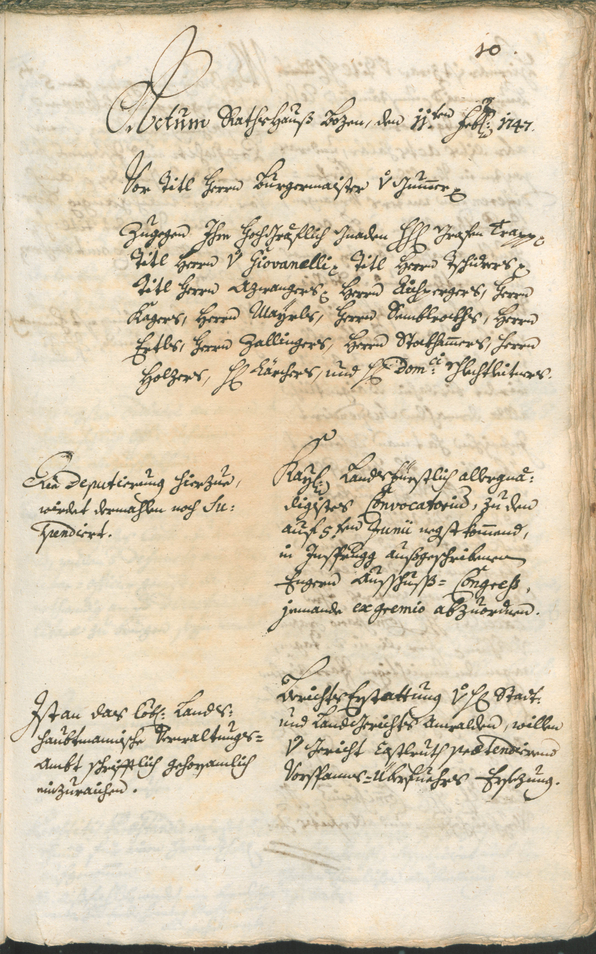 10.
Actum Rathshauß Bozen, den 11.ten Febr: 1747.
Vor Titl Herrn Burgermaister V Zummer
Zugegen Ihro Hochgräfflich Gnaden Grafen Trapp
Titl Herrn V Giovanelli, Titl Herrn Tschiders,
Titl Herrn Azwangers, Herrn Aichpergers, Herrn
Kagers, Herrn Mayrls, Herrn Herrn
Ertls, Herrn Zallingers, Herrn Stockhamers, Herrn
Holzers, H: Kärchers, und H: Domci Schlechtleitners.
Die Deputierung hierzue,
wirdet dermahlen noch Su:
spendiert.
Kayl: Landsfürstlich allergnä:
digistes Convocatorium, zu dem
auf 5ten Junii negst komend,
in Insprugg außgeschribenen
Engern Ausschuß-Congreß,
jemande ex gremio abzuordnen.
Ist an das Löbl: Lands:
haubtmannische Verwaltungs=
Ambt schrifftlich gehorsamlich
einzuraichen.
Berichts Erstattung V H: Statt
und Landtgerichts Anwalden, willen
V Gericht Castlruth praetendirend
Vorspanns-Überfuehrs Ersezung.